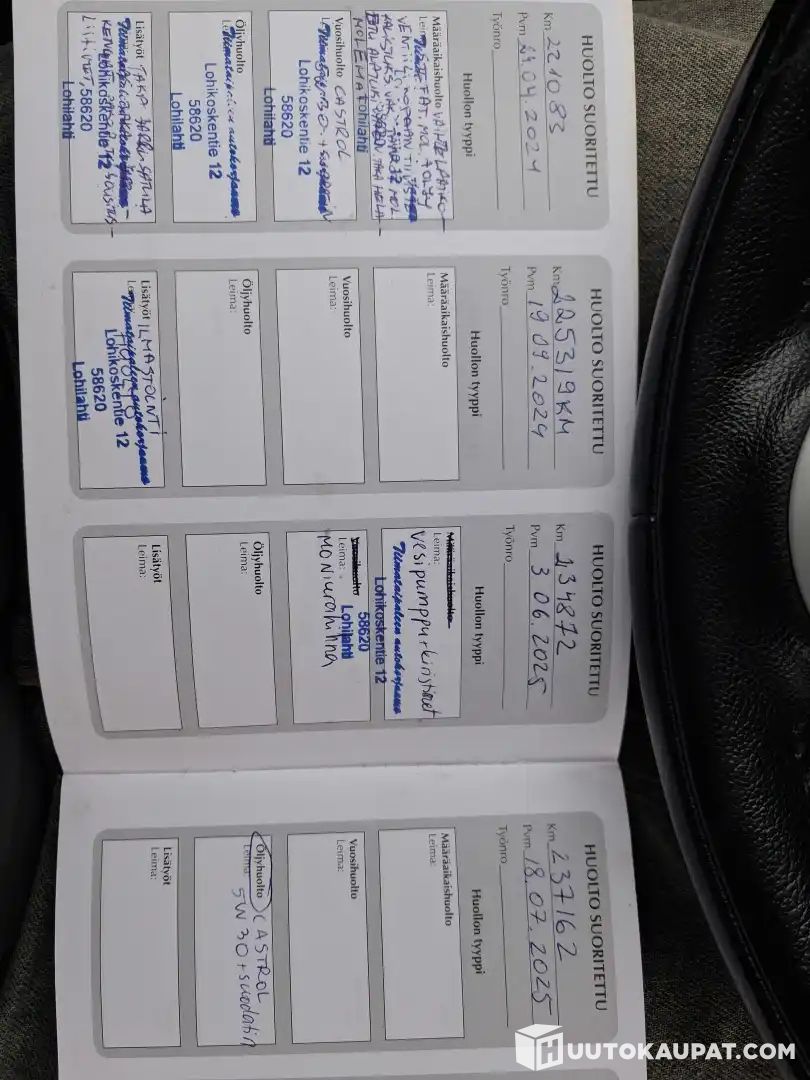 HUOLTO SUORITETTU
Km 221083
Pvm 24.04.2024
Työnro
Huollon tyyppi
Määräaikaishuolto
MOL. TOLJY
Vuosihuolto CASTROL
Lohikoskentie 12
58620
Lohilahti
Öljyhuolto
Leima:
Tiimataipaleen autokorjaamo
Lohikoskentie 12
58620
Lohilahti
Lisätyöt TAKA JARRUSATULA
Lohikoskentie 12
58620
Lohilahti
HUOLTO SUORITETTU
Km 225319KM
Pvm 19.09.2024
Työnro
Huollon tyyppi
Määräaikaishuolto
Leima:
Vuosihuolto
Leima:
Öljyhuolto
Leima:
Lisätyöt ILMASTOINTI
HUOLTO
Tiimataipaleen autokorjaamo
Lohikoskentie 12
58620
Lohilahti
HUOLTO SUORITETTU
Km 234872
Pvm 3 06.2025
Työnro
Huollon tyyppi
Määräaikaishuolto
Leima:
Vesipumppu+kiristimet
Tiimataipaleen autokorjaamo
Lohikoskentie 12
58620
Lohilahti
Vuosihuolto
Leima:
MONIURAhihna
Öljyhuolto
Leima:
Lisätyöt
Leima:
HUOLTO SUORITETTU
Km 237162
Pvm 18.07.2025
Työnro
Huollon tyyppi
Määräaikaishuolto
Leima:
Vuosihuolto
Leima:
Öljyhuolto CASTROL
Leima: 5W30+suodatin
Lisätyöt
Leima:
HUUTOKAUPAT.COM